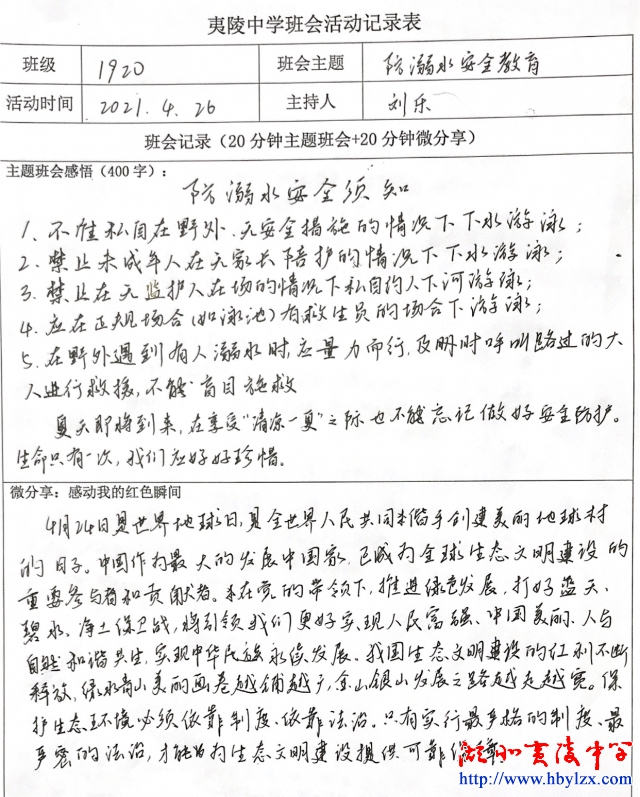 夷陵中学班会活动记录表
班级 1920 班会主题 防溺水安全教育
活动时间 2021.4.26 主持人 刘乐
班会记录（20分钟主题班会+20分钟微分享）
主题班会感悟（400字）：
防溺水安全须知
1、不准私自在野外、无安全措施的情况下下水游泳；
2、禁止未成年人在无家长陪护的情况下下水游泳；
3、禁止在无监护人在场的情况下私自约人下河游泳；
4、应在正规场合(如泳池)有救生员的场合下游泳；
5、在野外遇到有人溺水时，应量力而行，及时呼叫路过的大
人进行救援，不能盲目施救
夏天即将到来，在享受“清凉一夏”之际也不能忘记做好安全防护。
生命只有一次，我们应好好珍惜。
微分享：感动我的红色瞬间
4月24日是世界地球日，是全世界人民共同携手创建美丽地球村
的日子。中国作为最大的发展中国家，已成为全球生态文明建设的
重要参与者和贡献者。在党的带领下，推进绿色发展，打好蓝天、
碧水、净土保卫战，将引领我们更好实现人民富强、中国美丽、人与
自然和谐共生，实现中华民族永续发展。我国生态文明建设的红利不断
释放，绿水青山美丽画卷越铺越广，金山银山发展之路越走越宽。保
护生态环境必须依靠制度、依靠法治。只有实行最严格的制度、最
严密的法治，才能为生态文明建设提供可靠保障
湖北夷陵中学
http://www.hbylzx.com